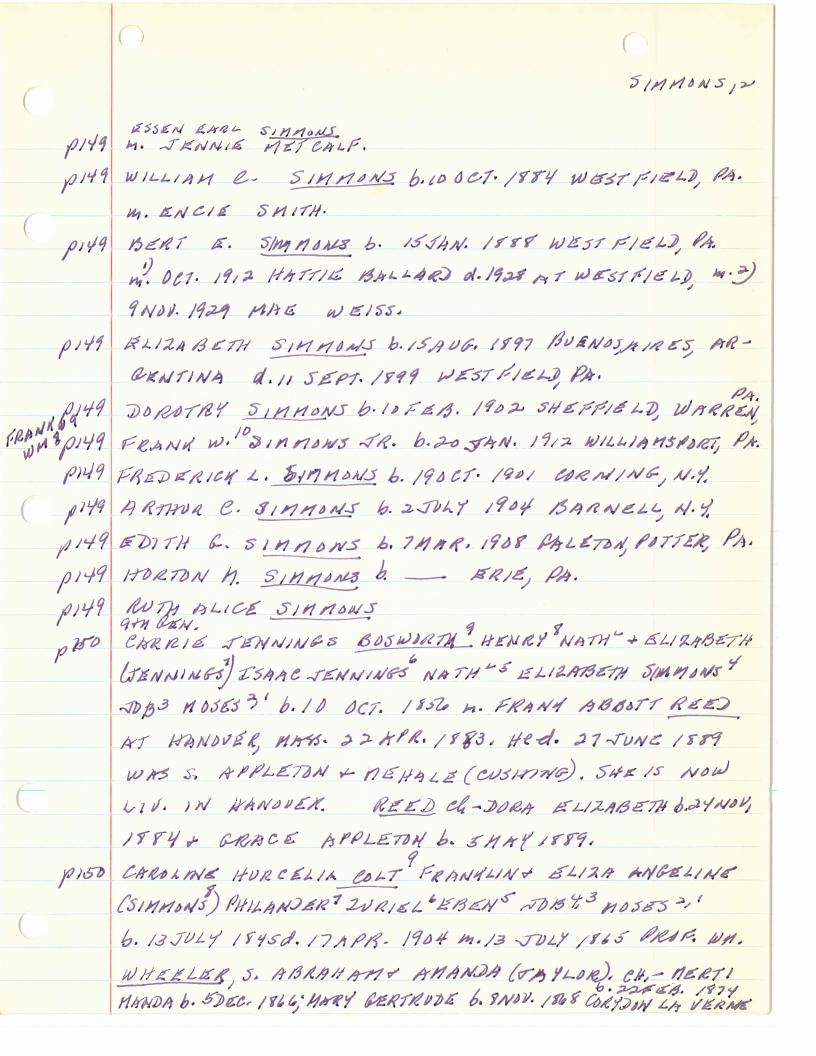 SIMMONS, 2
ESSEN EARL SIMMONS
p149 m. JENNIE METCALF.
p149 WILLIAM C. SIMMONS b. 10 OCT. 1884 WESTFIELD, PA.
m. ENCIE SMITH.
p149 BERT E. SIMMONS b. 15 JAN. 1888 WESTFIELD, PA.
1) m. OCT. 1912 HATTIE BALLARD d. 1928 AT WESTFIELD, m. 2)
9 NOV. 1929 MAE WEISS.
p149 ELIZABETH SIMMONS b. 15 AUG. 1897 BUENOS AIRES, AR-
GENTINA d. 11 SEPT. 1899 WESTFIELD, PA.
p149 DOROTHY SIMMONS b. 10 FEB. 1902 SHEFFIELD, WARREN, PA.
FRANK 9
WM 8 p149 FRANK W.10 SIMMONS JR. b. 20 JAN. 1912 WILLIAMSPORT, PA.
p149 FREDERICK L. SIMMONS b. 19 OCT. 1901 CORNING, N.Y.
p149 ARTHUR C. SIMMONS b. 2 JULY 1904 BARNELL, N.Y.
p149 EDITH G. SIMMONS b. 7 MAR. 1908 GALETON, POTTER, PA.
p149 HORTON N. SIMMONS b. — ERIE, PA.
p149 RUTH ALICE SIMMONS
9th GEN.
p150 CARRIE JENNINGS BOSWORTH9 HENRY8 NATHL + ELIZABETH
(JENNINGS7) ISAAC JENNINGS6 NATHL5 ELIZABETH SIMMONS4
JOB3 MOSES2,1 b. 10 OCT. 1856 m. FRANK ABBOTT REED
AT HANOVER, MASS. 22 APR. 1883. He d. 27 JUNE 1889
WAS S. APPLETON + MEHALE (CUSHING). SHE IS NOW
LIV. IN HANOVER. REED Ch - DORA ELIZABETH b. 24 NOV,
1884 + GRACE APPLETON b. 3 MAY 1889.
p150 CAROLINE HURCELIA COLT9 FRANKLIN + ELIZA ANGELINE
(SIMMONS8) PHILANDER7 ZURIEL6 EBEN5 JOB4,3 MOSES2,1
b. 13 JULY 1845 d. 17 APR. 1904 m. 13 JULY 1865 PROF. WM.
WHEELER, S. ABRAHAM + AMANDA (TAYLOR). CH. - MERTI
b. 22 FEB. 1874
MANDA b. 5 DEC. 1866; MARY GERTRUDE b. 8 NOV. 1868 CORYDON LA VERNE